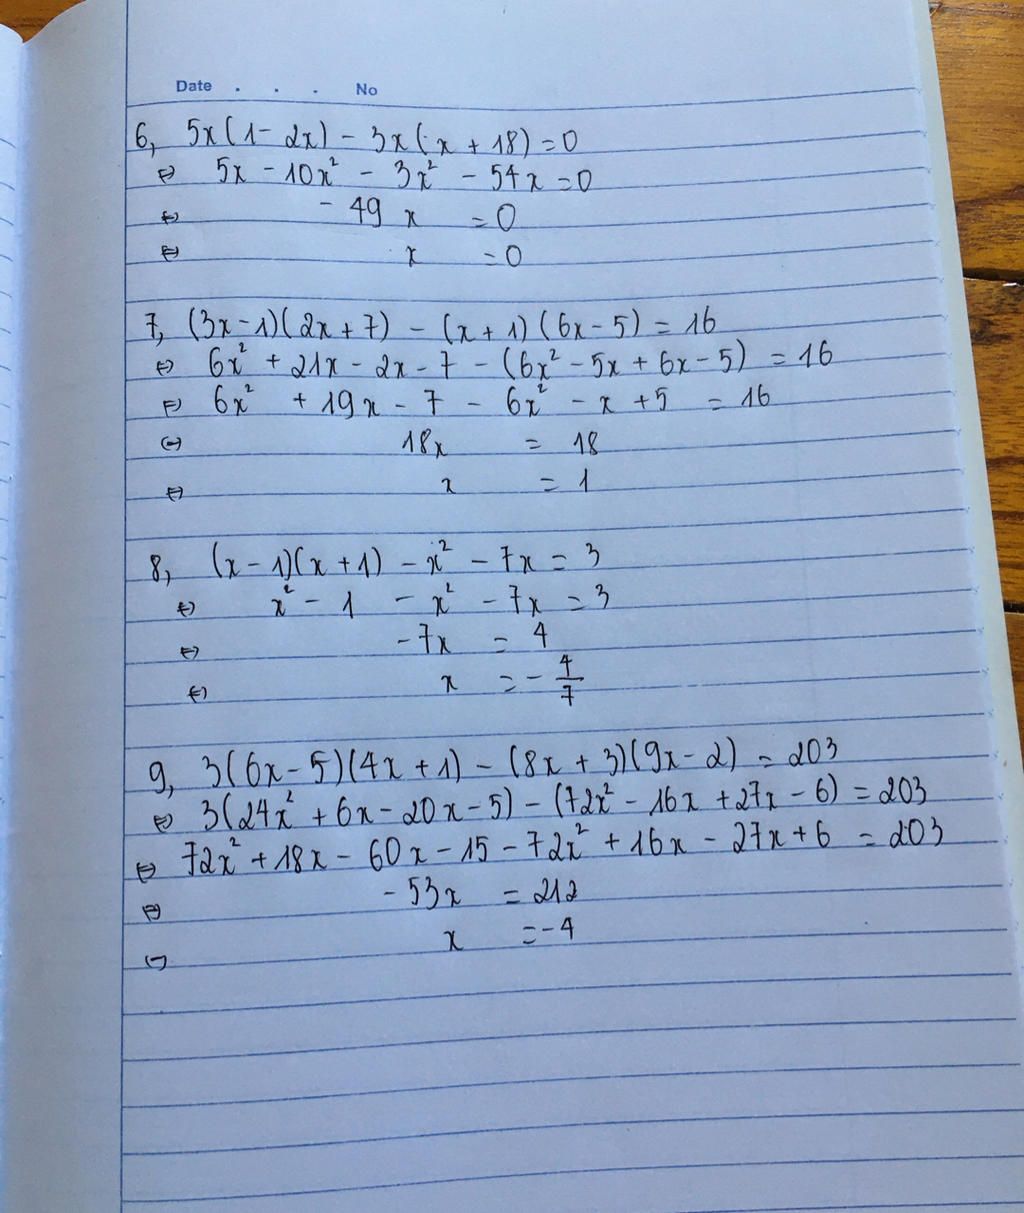 Date . . . No
6, 5x(1 - 2x) - 3x(x + 18) = 0
⇔ 5x - 10x² - 3x² - 54x = 0
⇔ - 49 x = 0
⇔ x = 0
7, (3x - 1)(2x + 7) - (x + 1)(6x - 5) = 16
⇔ 6x² + 21x - 2x - 7 - (6x² - 5x + 6x - 5) = 16
⇔ 6x² + 19x - 7 - 6x² - x + 5 = 16
⇔ 18x = 18
⇔ x = 1
8, (x - 1)(x + 1) - x² - 7x = 3
⇔ x² - 1 - x² - 7x = 3
⇔ -7x = 4
⇔ x = - 4/7
9, 3(6x - 5)(4x + 1) - (8x + 3)(9x - 2) = 203
⇔ 3(24x² + 6x - 20x - 5) - (72x² - 16x + 27x - 6) = 203
⇔ 72x² + 18x - 60x - 15 - 72x² + 16x - 27x + 6 = 203
⇔ - 53x = 212
⇔ x = -4